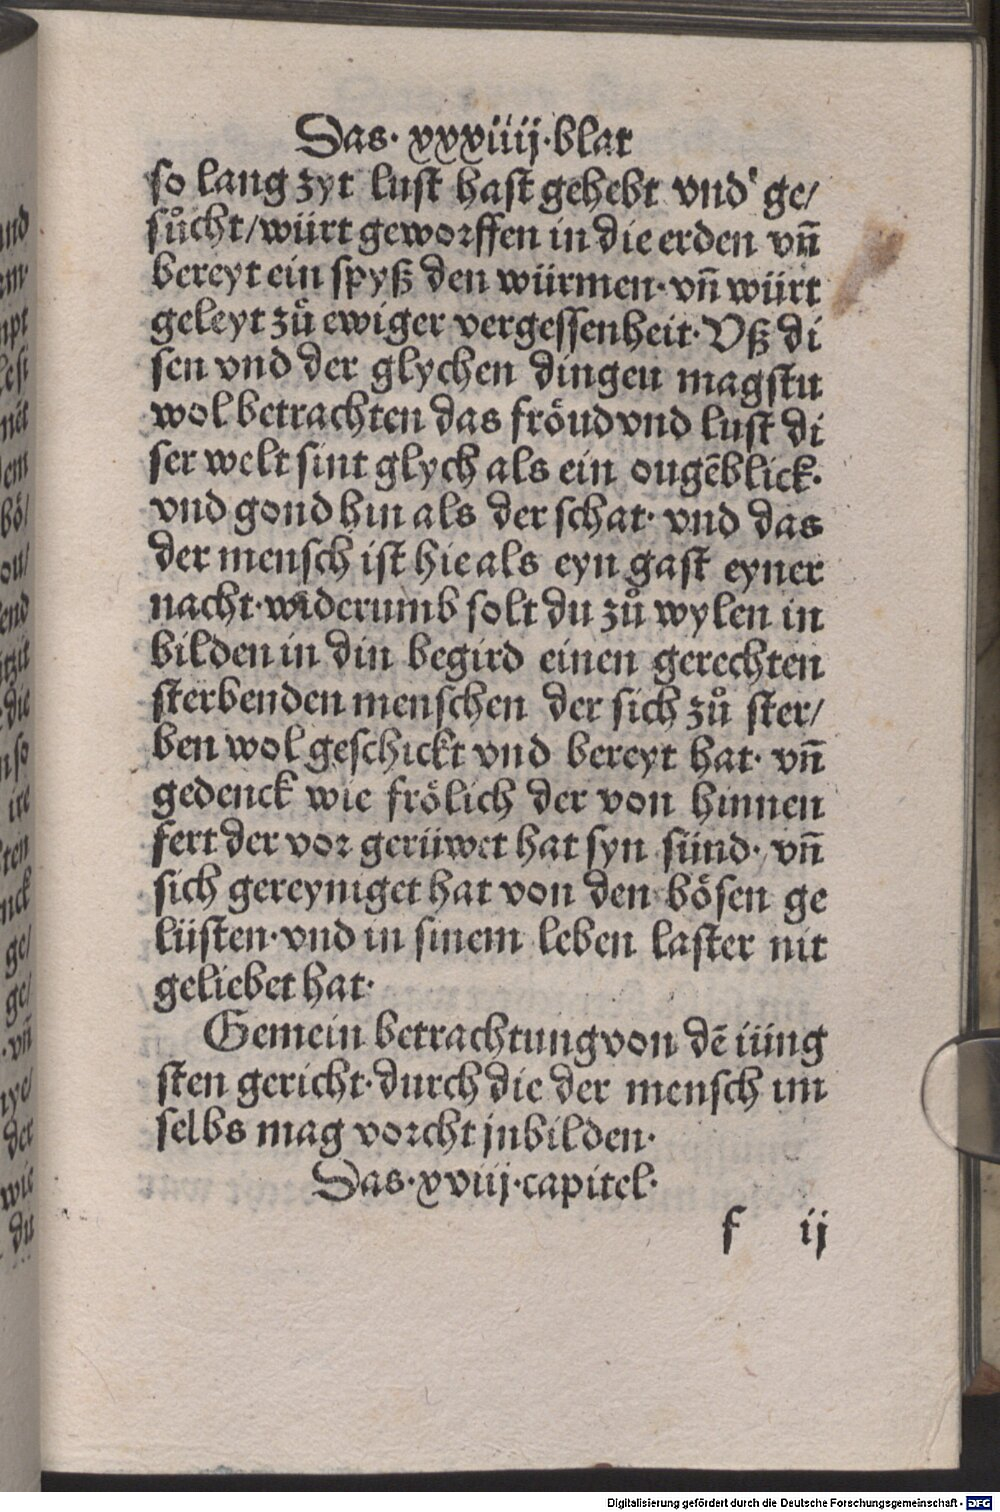 Das· xxxiiij·blat
so lang zyt lust hast gehebt vnd ge/
sůcht/würt geworffen in die erden vñ
bereyt ein spyß den würmen· vñ würt
geleyt zů ewiger vergessenheit· Vß di
sen vnd der glychen dingen magstu
wol betrachten das fröud vnd lust di
ser welt sint glych als ein ougẽblick·
vnd gond hin als der schat· vnd das
der mensch ist hie als eyn gast eyner
nacht· widerumb solt du zů wylen in
bilden in din begird einen gerechten
sterbenden menschen der sich zů ster/
ben wol geschickt vnd bereyt hat· vñ
gedenck wie frölich der von hinnen
fert der vor gerüwet hat syn sünd· vñ
sich gereyniget hat von den bösen ge
lüsten· vnd in sinem leben laster nit
geliebet hat·
Gemein betrachtung von dẽ iüng
sten gericht· durch die der mensch im
selbs mag vorcht jnbilden·
Das·xviij·capitel·
f ij
Digitalisierung gefördert durch die Deutsche Forschungsgemeinschaft - DFG